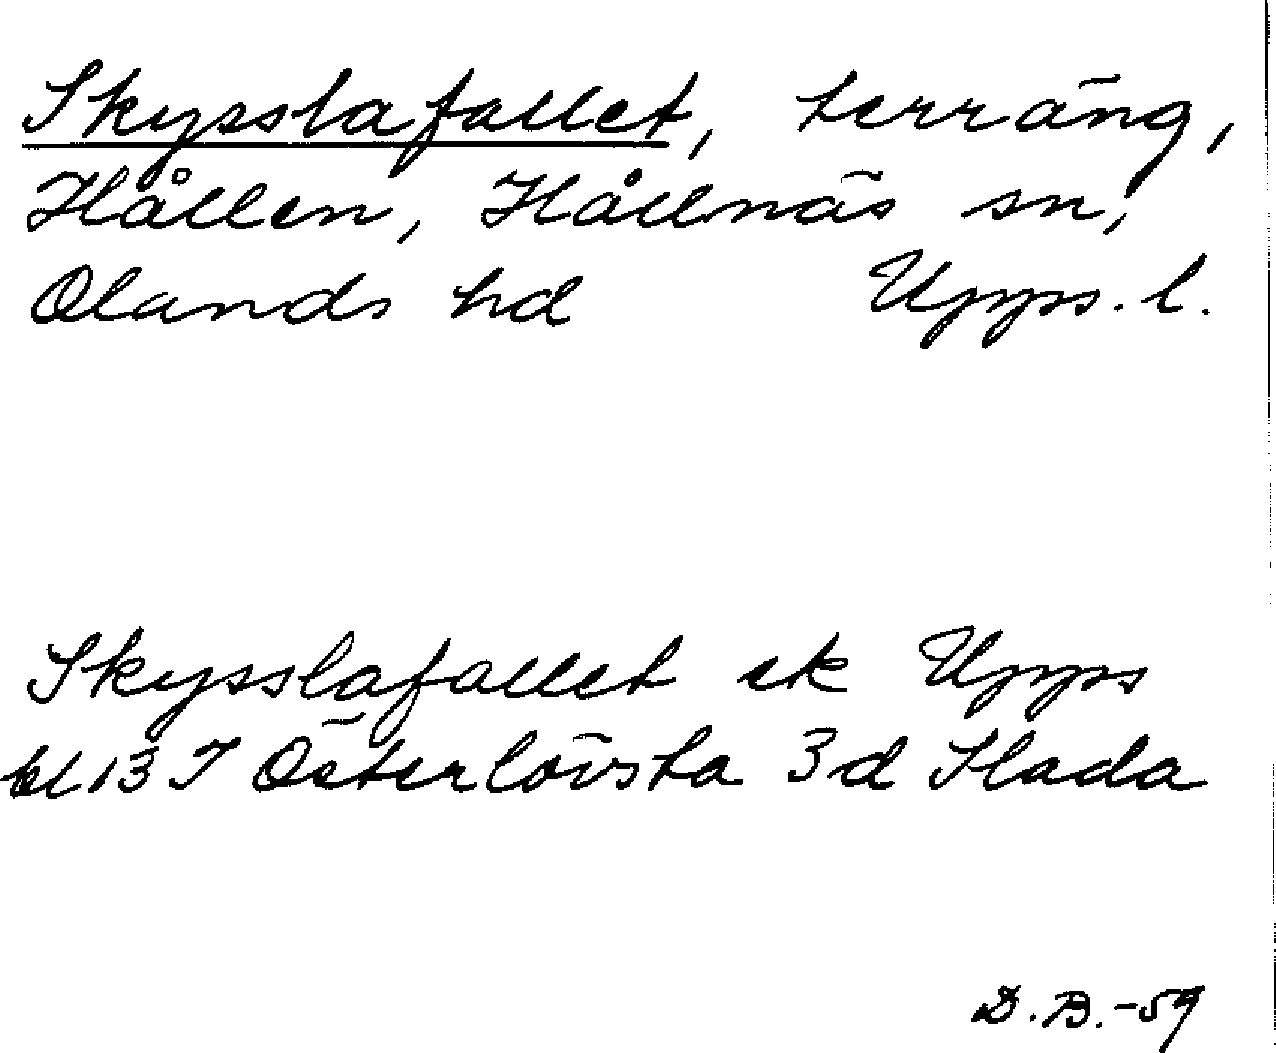 Skysslafallet, terräng,
Hållen, Hållnäs sn,
Olands hd Upps. l.
Skysslafallet ek Upps
bl 13 I Österlövsta 3d Hada
D.B.-59